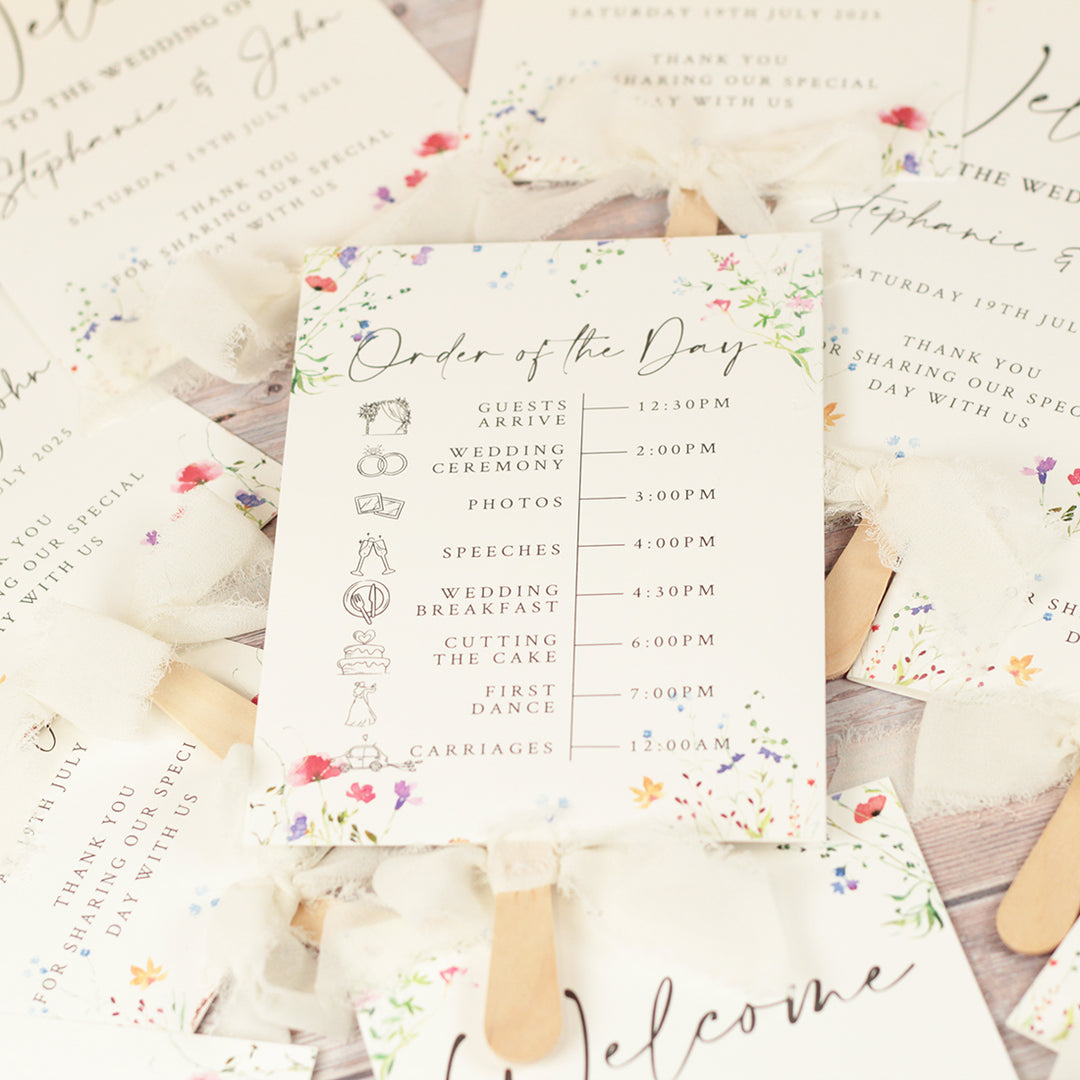 TO THE WEDDING OF
Stephanie & John
SATURDAY 19TH JULY 2025
THANK YOU
FOR SHARING OUR SPECIAL
DAY WITH US
SATURDAY 19TH JULY 2025
THANK YOU
FOR SHARING OUR SPECIAL
DAY WITH US
THE WED
Stephanie &
SATURDAY 19TH JUL
THANK YOU
OR SHARING OUR SPEC
DAY WITH US
Order of the Day
GUESTS
ARRIVE
12:30PM
WEDDING
CEREMONY
2:00PM
PHOTOS
3:00PM
SPEECHES
4:00PM
WEDDING
BREAKFAST
4:30PM
CUTTING
THE CAKE
6:00PM
FIRST
DANCE
7:00PM
CARRIAGES
12:00AM
ohn
JULY 2025
YOU
OUR SPECIAL
WITH US
19TH JULY
THANK YOU
FOR SHARING OUR SPECI
DAY WITH US
R SH
D
Welcome